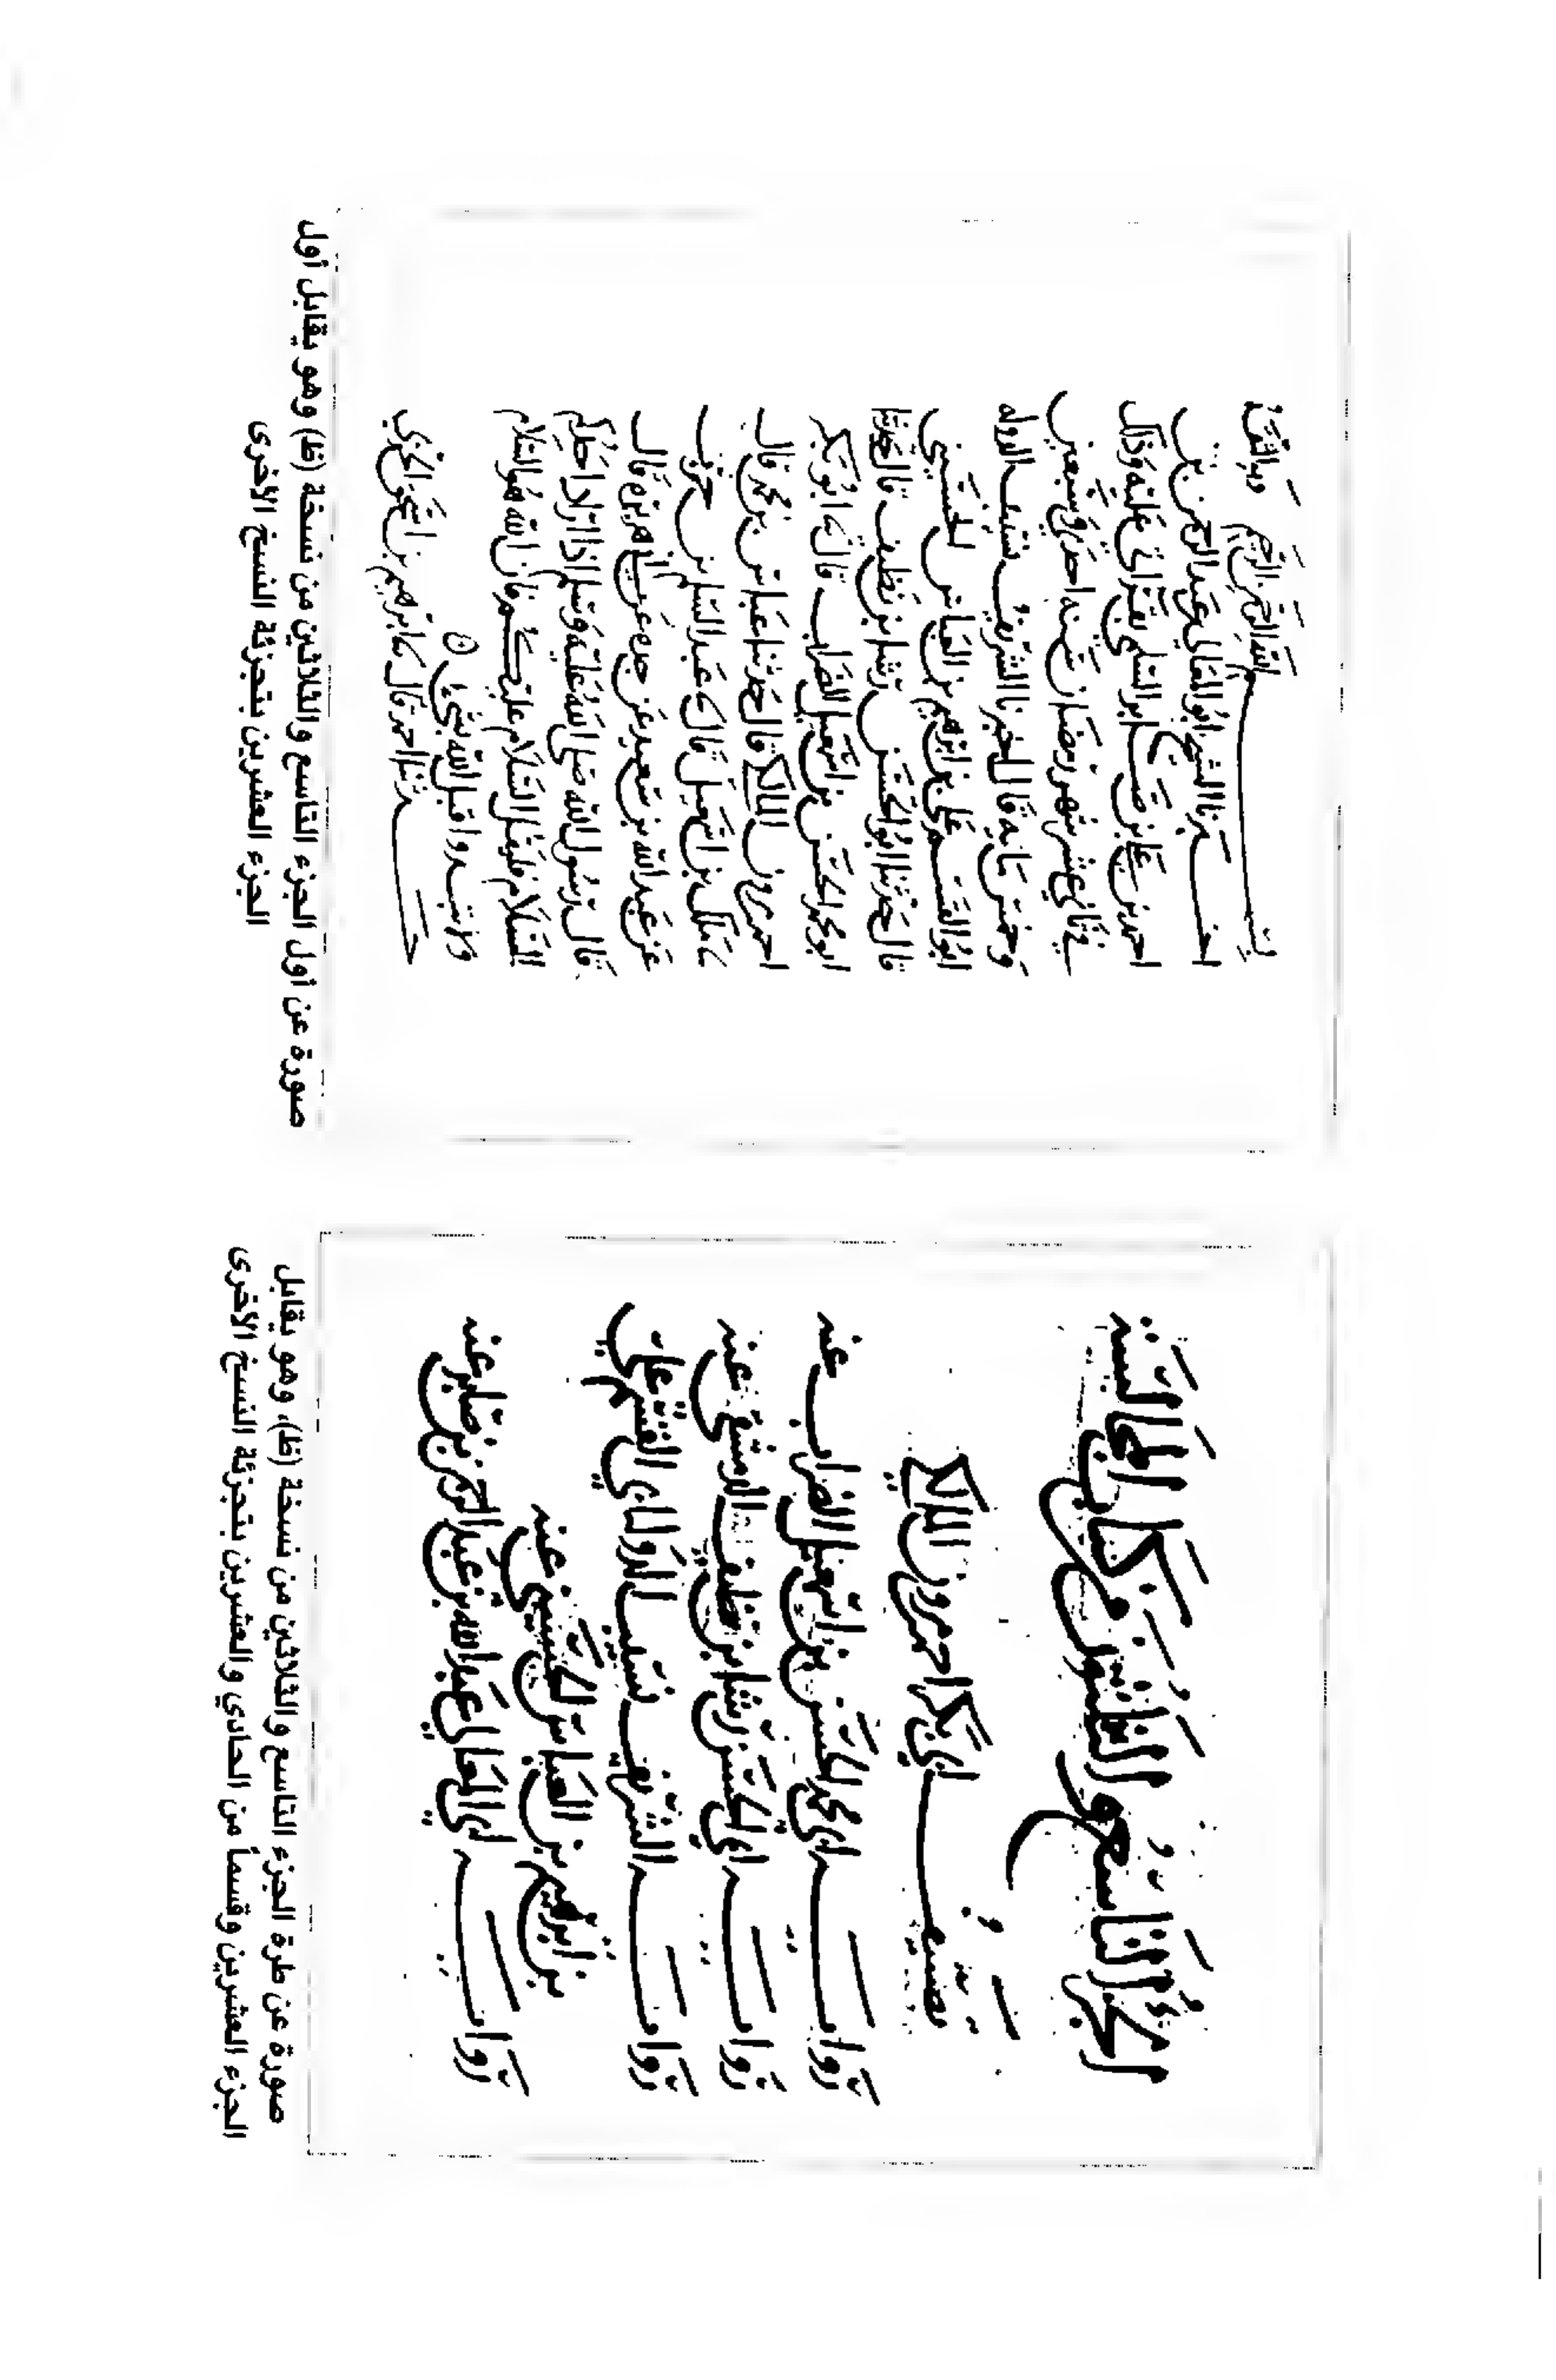 الجزء التاسع والثلثون من كتاب المجالسة
تصنيف
ابي بكر احمد بن مروان المالكي
رواية ابي محمد الحسن بن اسمعيل الضراب عنه
رواية ابي الحسن رشا بن نظيف الدمشقي عنه
رواية الشريف نسيب الدولة ابي القسم علي
بن ابرهيم بن العباس الحسيني عنه
رواية ابي المعالي عبد الله بن عبد الرحمن بن صابر عنه
صورة عن طرة الجزء التاسع والثلاثين من نسخة (ظ)، وهو يقابل
الجزء العشرين وقسماً من الحادي والعشرين بتجزئة النسخ الأخرى
بسم الله الرحمن الرحيم وبه الثقة
اخبرنا الشيخ ابو المعالي عبد الرحمن بن
احمد بن علي بن صابر السلمي بقراتي عليه وذلك
في ثاني عشر شهر رمضان سنة احدى وسبعين
وخمس مايه قال اخبرنا الشريف نسيب الدوله
ابو القسم علي بن ابرهيم بن العباس الحسيني
قال حدثنا ابو الحسن رشا بن نظيف قال حدثنا
ابو محمد الحسن بن اسمعيل الضراب قال ابو بكر
احمد بن مروان المالكي قال حدثنا عباس بن محمد قال
ملك بن اسمعيل قال عبد السلم بن حرب
عن عبد الله بن سعيد عن جده عن ابي هريره قال
قال رسول الله صلى الله عليه وسلم اذا اراد احدكم
السلام فليقل السلام عليكم فان الله هو السلام
ولا تبدوا قبل الله بشي
حدثنا احمد قال ابرهيم بن اسحق الحربي
صورة عن أول الجزء التاسع والثلاثين من نسخة (ظ) وهو يقابل أول
الجزء العشرين بتجزئة النسخ الأخرى